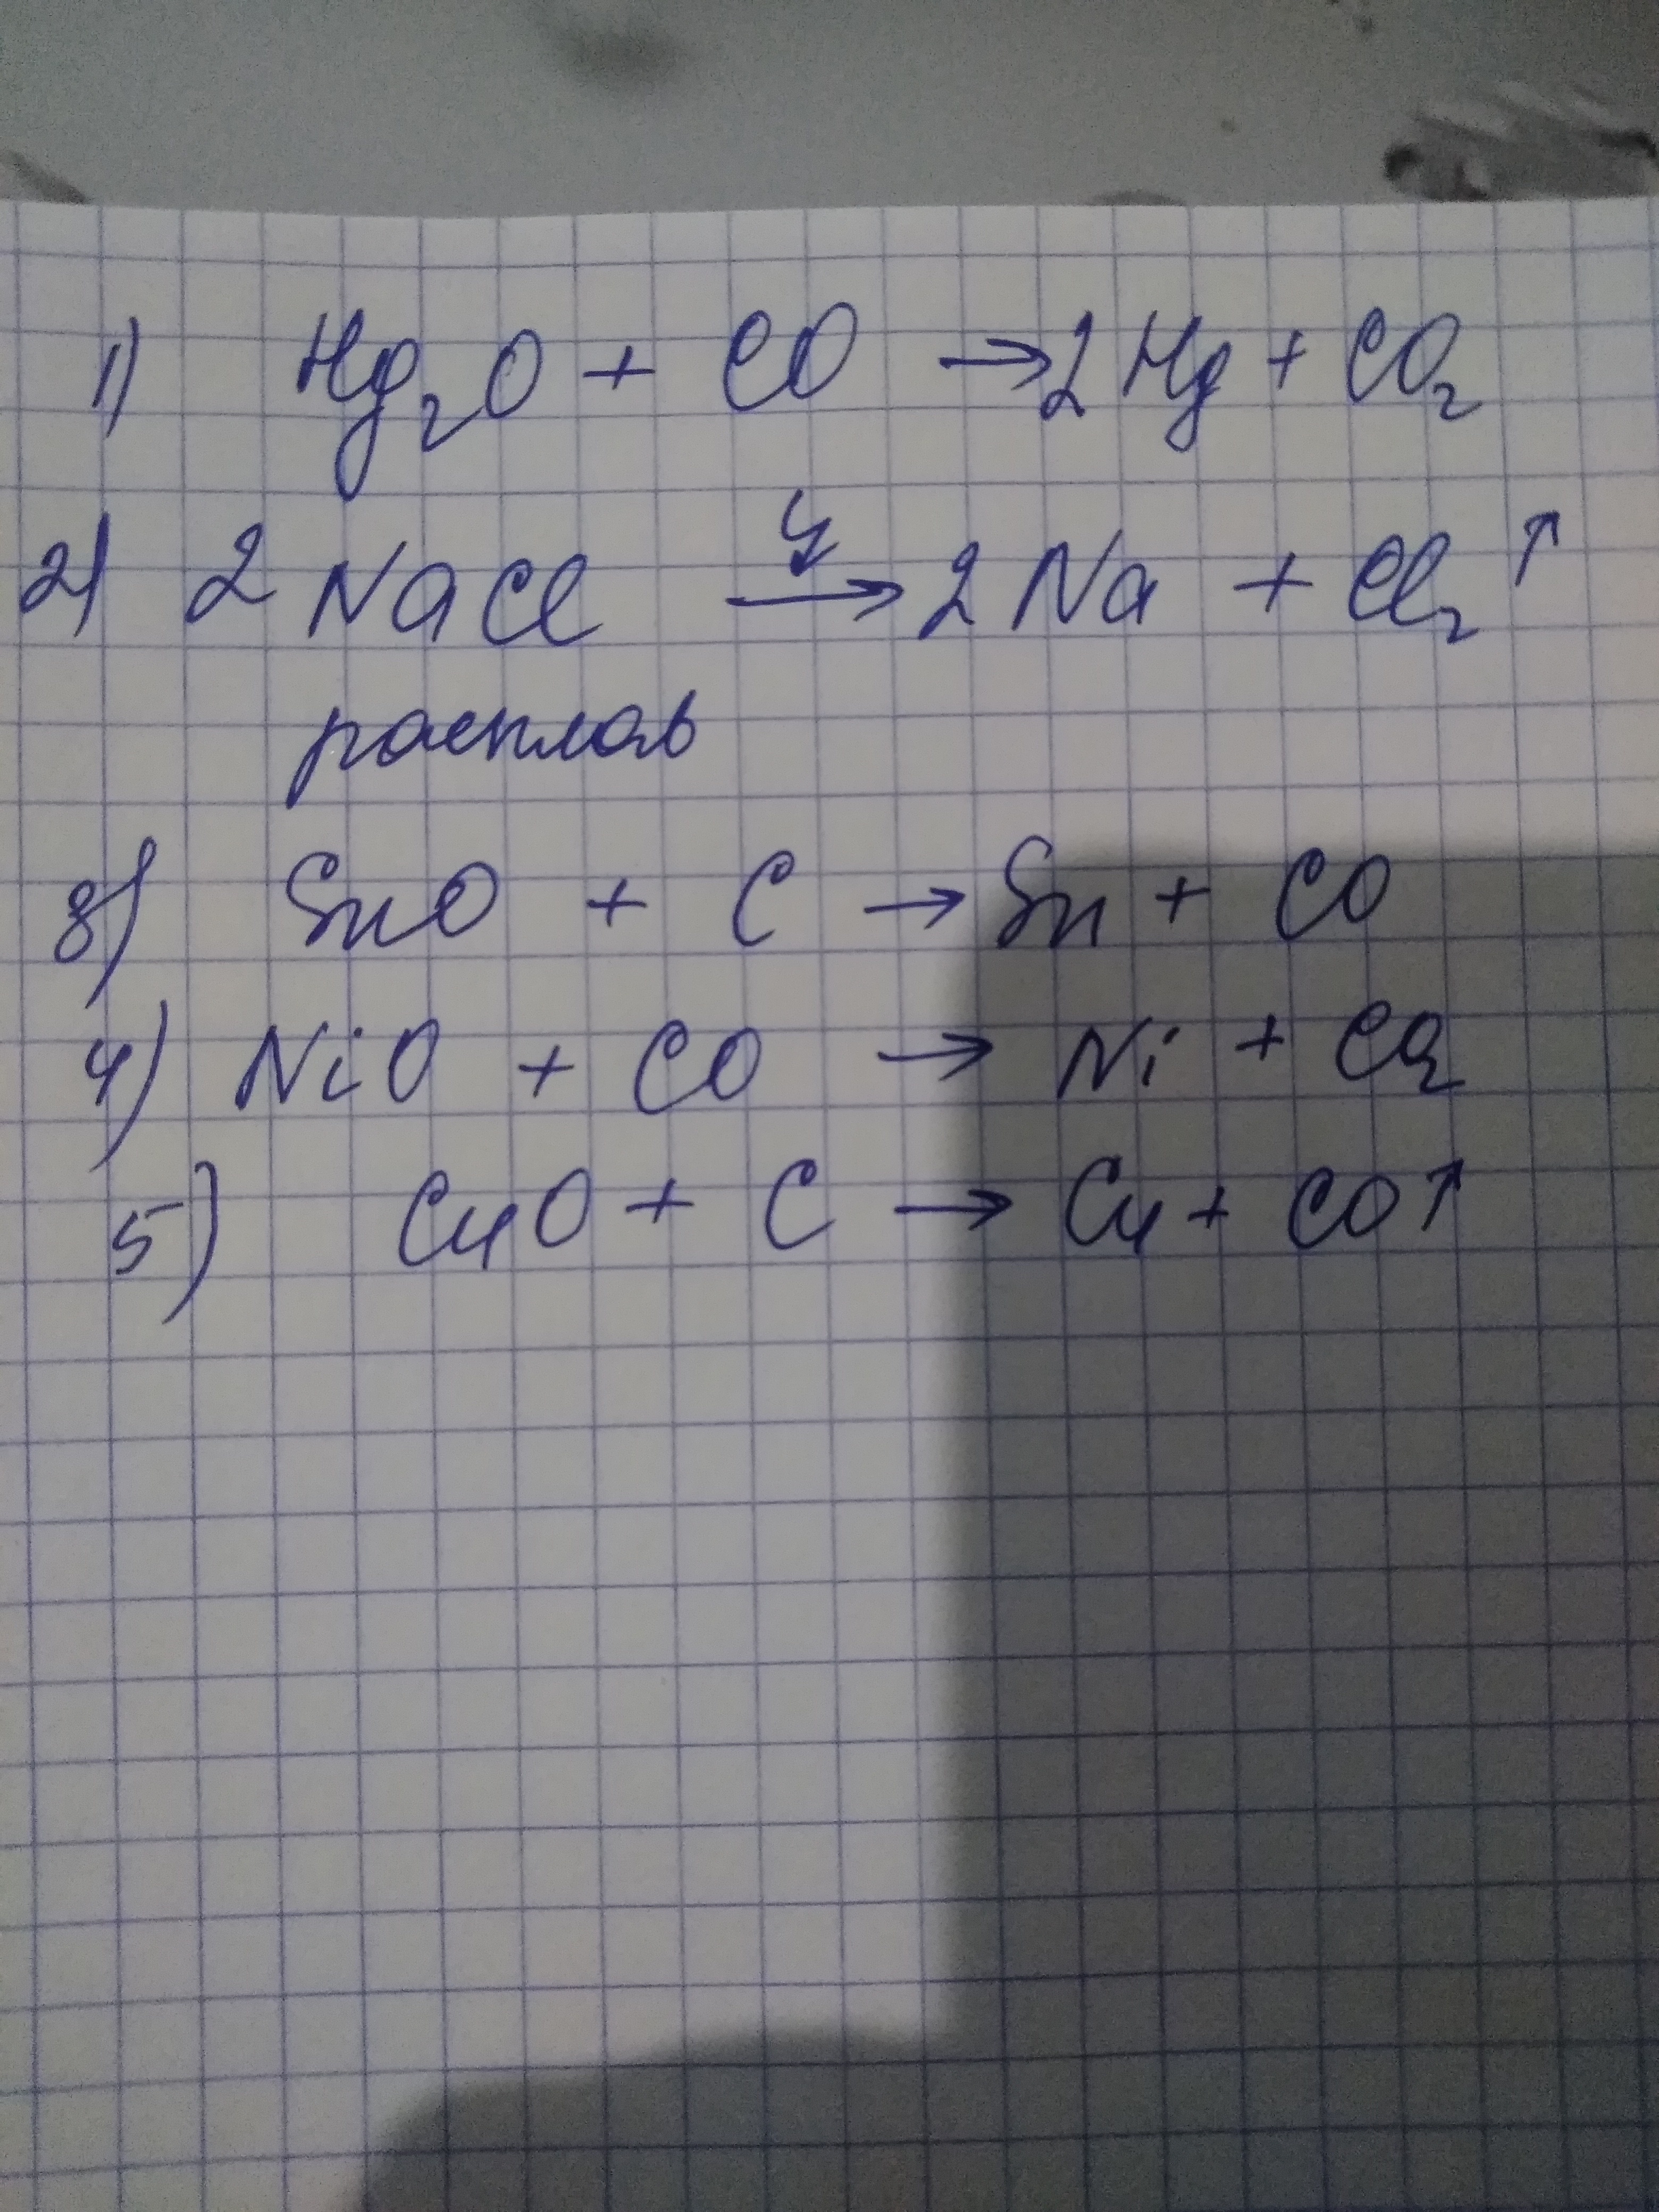 1) Hg₂O + CO → 2Hg + CO₂
2) 2NaCl → 2Na + Cl₂ ↑
расплав
3) SnO + C → Sn + CO
4) NiO + CO → Ni + CO₂
5) CuO + C → Cu + CO ↑